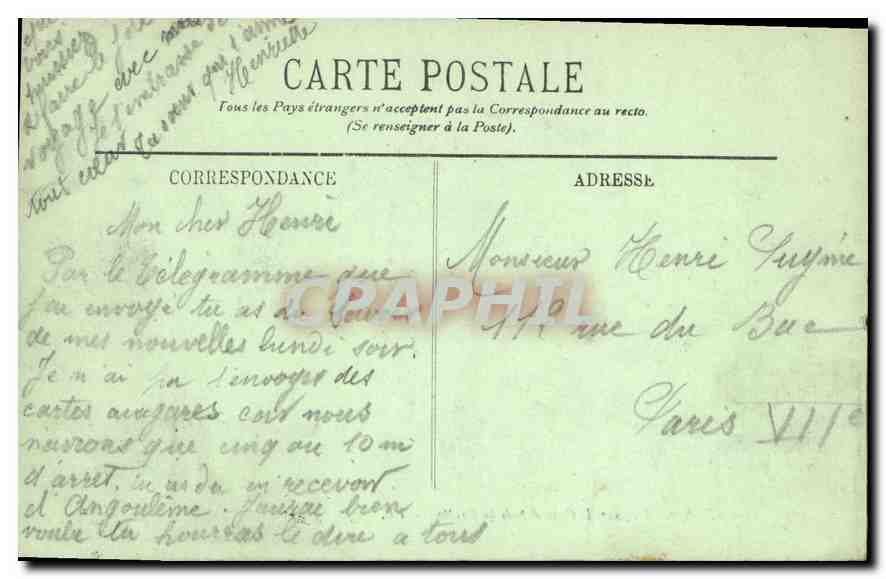 CARTE POSTALE
Tous les Pays étrangers n'acceptent pas la Correspondance au recto.
(Se renseigner à la Poste).
CORRESPONDANCE
ADRESSE
Mon cher Henri
Par le télégramme que
j'ai envoye tu as du
de mes nouvelles lundi soir.
Je n'ai pu t'envoyes des
cartes aux gares car nous
navions que cinq ou 10 m
d'arret. tu as du en recevoir
d'Angoulême. J'aurai bien
voulu tu pourras le dire a tous
voyage avec
je t'embrasse de
tout cœur ta sœur qui t'aime
Henriette
Monsieur Henri
rue du Bac
Paris VIIe
CPAPHIL